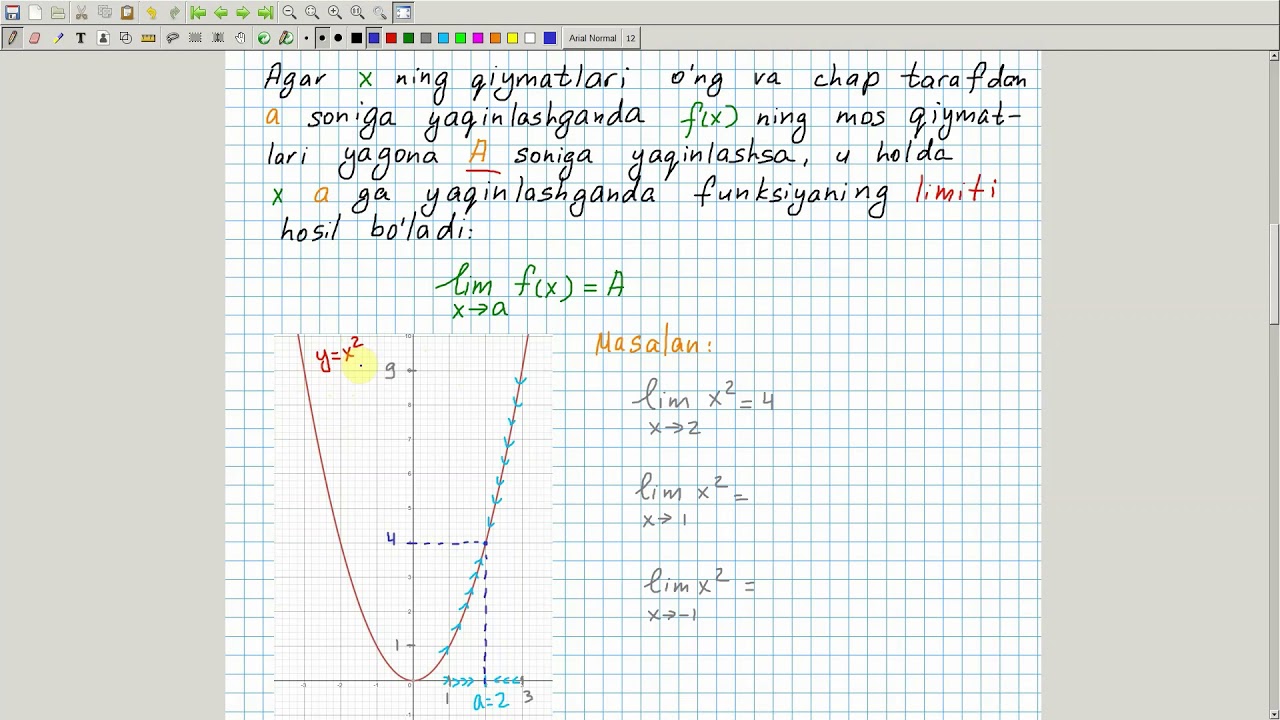 Arial Normal 12
Agar x ning qiymatlari o'ng va chap tarafdan
a soniga yaqinlashganda f(x) ning mos qiymat-
lari yagona A soniga yaqinlashsa, u holda
x a ga yaqinlashganda funksiyaning limiti
hosil bo'ladi:
lim f(x) = A
x→a
y=x²
10
9
8
7
6
5
4
3
2
1
-3 -2 -1 0 1 3
a=2
-1
Masalan:
lim x² = 4
x→2
lim x² =
x→1
lim x² =
x→-1